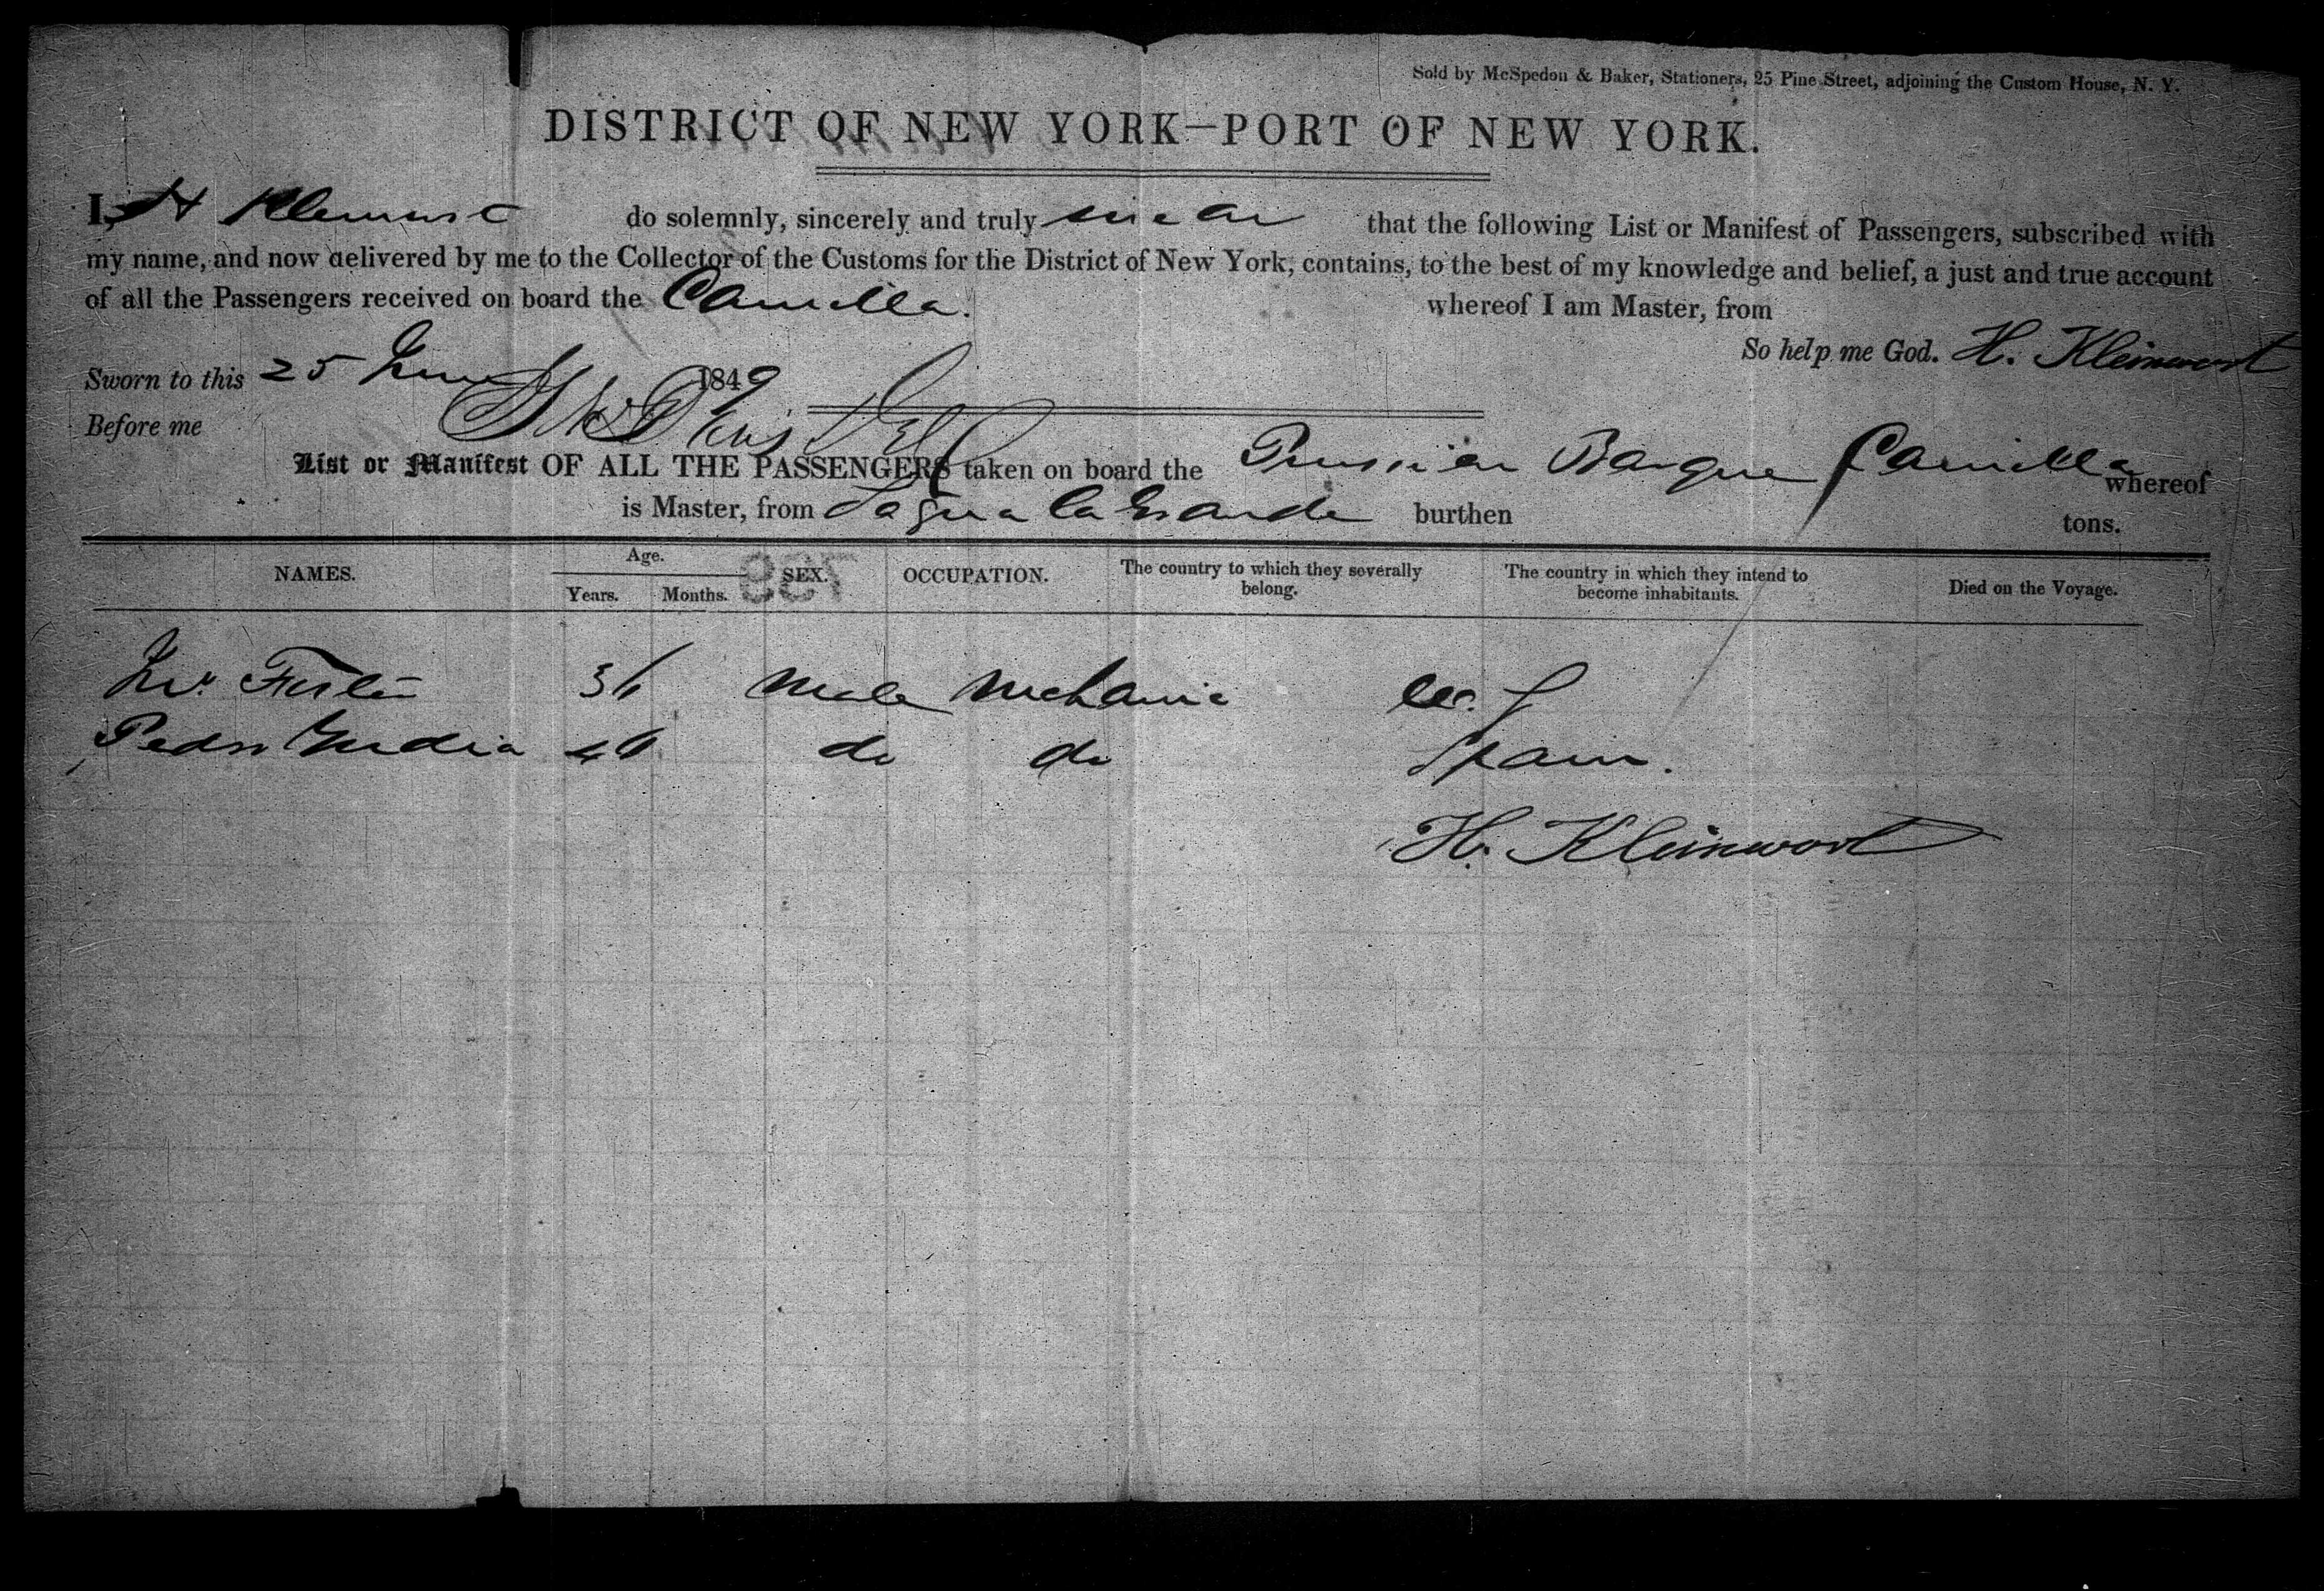 Sold by McSpedon & Baker, Stationers, 25 Pine Street, adjoining the Custom House, N. Y.
DISTRICT OF NEW YORK—PORT OF NEW YORK.
I, H Kleinwort do solemnly, sincerely and truly swear that the following List or Manifest of Passengers, subscribed with
my name, and now delivered by me to the Collector of the Customs for the District of New York, contains, to the best of my knowledge and belief, a just and true account
of all the Passengers received on board the Camilla. whereof I am Master, from
So help me God. H. Kleinwort
Sworn to this 25 June 1849
Before me
List or Manifest OF ALL THE PASSENGERS taken on board the Prussian Barque Camilla whereof
is Master, from Sagua la Grande burthen tons.
NAMES. Age. Years. Months. SEX. OCCUPATION. The country to which they severally belong. The country in which they intend to become inhabitants. Died on the Voyage.
36 Male Mechanic
Pedro 46 do do Spain.
H. Kleinwort